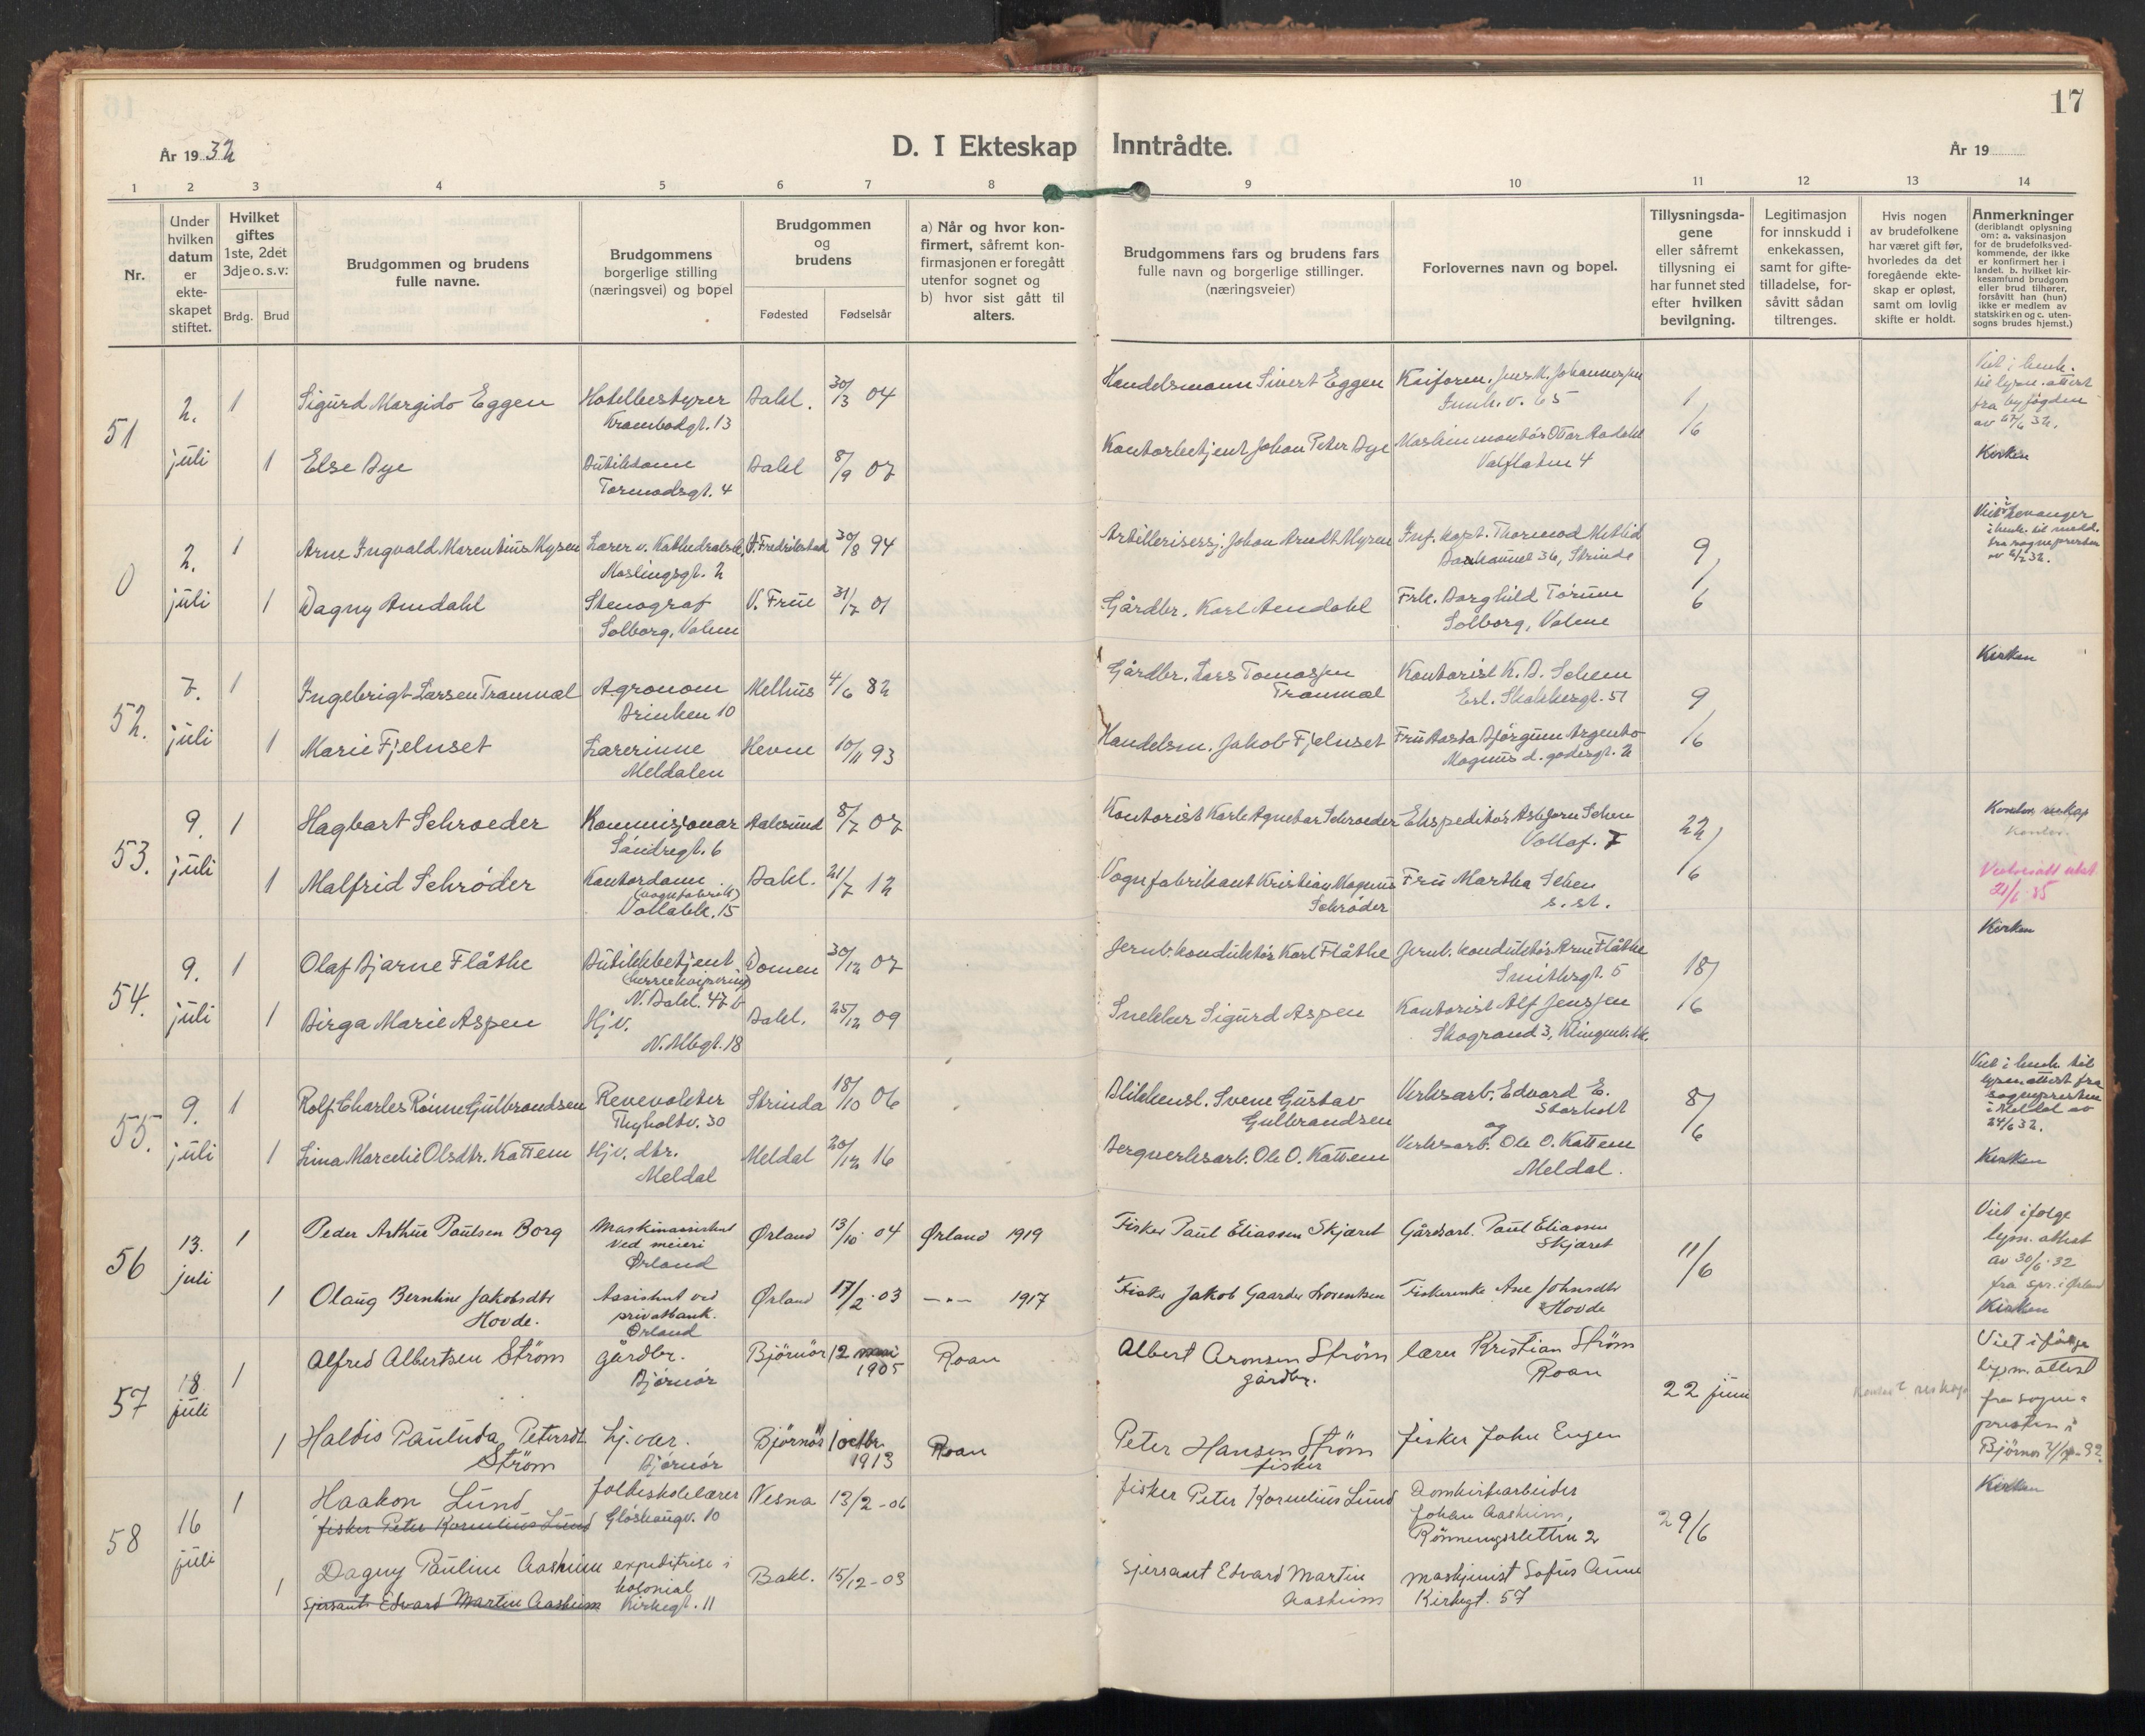 17
År 1932
D. I Ekteskap Inntrådte.
År 19
1 2 3 4 5 6 7 8 9 10 11 12 13 14
Nr.
Under hvilken datum er ekteskapet stiftet.
Hvilket giftes 1ste, 2det 3dje o. s. v:
Brdg. Brud
Brudgommen og brudens fulle navne.
Brudgommens borgerlige stilling (næringsvei) og bopel
Brudgommen og brudens
Fødested Fødselsår
a) Når og hvor konfirmert, såfremt konfirmasjonen er foregått utenfor sognet og
b) hvor sist gått til alters.
Brudgommens fars og brudens fars fulle navn og borgerlige stillinger. (næringsveier)
Forlovernes navn og bopel.
Tillysningsdagene eller såfremt tillysning ei har funnet sted efter hvilken bevilgning.
Legitimasjon for innskudd i enkekassen, samt for giftetilladelse, forsåvitt sådan tiltrenges.
Hvis nogen av brudefolkene har været gift før, hvorledes da det foregående ekteskap er opløst, samt om lovlig skifte er holdt.
Anmerkninger (deriblandt oplysning om: a. vaksinasjon for de brudefolks vedkommende, der ikke er konfirmert her i landet. b. hvilket kirkesamfund brudgom eller brud tilhører, forsåvitt han (hun) ikke er medlem av statskirken og c. utensogns brudes hjemst.)
51 2. juli
1 Sigurd Margido Eggen Hotellbestyrer Krambodgt. 13 Bakl. 30/3 04 Handelsmann Sivert Eggen
Innh.v. 65 1/6
1 Else Bye Butikdame Tormodsgt. 4 Bakl 8/9 07 Kontorbetjent Johan Peter Bye
Vatflaten 4
til lysn. attest fra byfogden
Kirken
0 2. juli
1 Arne Ingvald Marentius Mysen Lærer v. Katedralsk. Møslingsgt. 2 Fredrikstad 30/8 94
Inf. kapt. Thormod
36, Strinda 9/6
1 Dagny Amdahl Stenograf Solborg, Valene V. Frue 31/7 01 Gårdbr. Karl Amdahl
Frk. Borghild Torum Solborg, Valene
52. 7. juli
1 Ingebrigt Larsen Tranmæl Agronom Brinken 10 Melhus 4/6 82 Gårdbr. Lars Tomassen Tranmæl
Kontorist K. B. Solem Erl. Skakkesgt. 51 9/6
1 Marie Fjelnset Lærerinne Meldalen Hevne 10/11 93 Handelsm. Jakob Fjelnset
Magnus d. godesgt. 2
Kirken
53. 9. juli
1 Hagbart Schroeder Kommisjonær Sandregt. 6 Aalesund 8/7 07 Kontorist Karl Schroeder
Ekspeditør Asbjørn Schen Vollaf. 7 22/6
1 Malfrid Schrøder Kontordame (vognfabrik) Vollabk. 15 Bakl. 21/7 12 Vognfabrikant Kristian Magnus Schrøder
Fru Martha Schen s. st.
54. 9. juli
1 Olaf Bjarne Flåthe Butikkbetjent (herreekvipering) N. Bakl. 47 b Domen 30/12 07 Jernb. konduktør Karl Flåthe
Jernb. konduktør Arne Flåthe Smithsgt. 5 18/6
1 Birga Marie Aspen Hj v. N. Albgt. 18 Bakl. 25/12 09 Snekker Sigurd Aspen
Kontorist Alf Jenssen Skogrand 3,
Kirken
55. 9. juli
1 Rolf Charles Rönne Gulbrandsen Revevokter Thyholtv. 30 Strinda 18/10 06 Blikkensl. Svene Gustav Gulbrandsen
Verksarb. Edvard E. Storholt 8/6
og
1 Lina Marcelie Olsdtr. Kattem Hj v. dtr. Meldal Meldal 20/12 16 Bergverksarb. Ole O. Kattem
Verksarb. Ole O. Kattem Meldal.
Viet i henh. til lysn. attest fra sognepresten i Meldal av 24/6 32.
Kirken
56 13. juli
1 Peder Arthur Paulsen Borg Maskinassistent ved meieri Ørland Ørland 13/10 04 Ørland 1919 Fisker Paul Eliassen Skjæret
Gårdsarb. Paul Eliassen Skjæret 11/6
1 Olaug Berntine Jakobsdtr Hovde. Assistent ved privatbank. Ørland Ørland 17/2 03 —"— 1917 Fisker Jakob Gaarder Lorentsen
Fiskerenke Ane Johnsdtr Hovde
Viet ifølge lysn. attest av 30/6 32 fra spr. i Ørland
Kirken
57 18 juli
1 Alfred Albertsen Ström gårdbr. Bjørnør Björnör 12 mai 1905 Roan Albert Aronsen Ström gårdbr.
lærer Kristian Ström Roan 22 juni
1 Haldis Pauluda Petersdt. Ström hj. vær. Bjørnør Björnör 1 octbr. 1913 Roan Peter Hansen Ström fisker
fisker John Eugen
Viet ifölge lysn. attest fra sognepresten i Björnör
58 16 juli
1 Haakon Lund folkeskolelærer Gløshaugv. 10 Nesna 13/2 - 06 fisker Peter Kornelius Lund
fisker Peter Kornelius Lund
Domkirkearbeider Johan Aasheim, Rönningsletten 2 29/6
1 Dagny Pauline Aasheim expeditrise i kolonial Kirkegt. 11 Bakl. 15/12 - 03 Sjersant Edvard Martin Aasheim
Sjersant Edvard Martin Aasheim
maskinist Sofus Aune Kirkegt. 57
Kirken